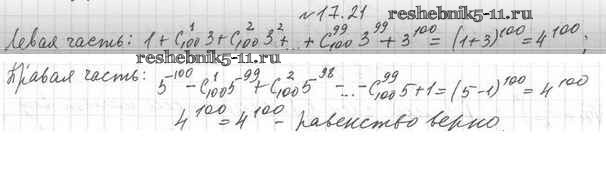 №17.21
reshebnik5-11.ru
Левая часть: 1+C¹₁₀₀3+C²₁₀₀3²+...+C⁹⁹₁₀₀3⁹⁹+3¹⁰⁰=(1+3)¹⁰⁰=4¹⁰⁰;
reshebnik5-11.ru
Правая часть: 5⁻¹⁰⁰-C¹₁₀₀5⁻⁹⁹+C²₁₀₀5⁻⁹⁸-...-C⁹⁹₁₀₀5+1=(5-1)¹⁰⁰=4¹⁰⁰
4¹⁰⁰=4¹⁰⁰ - равенство верно.